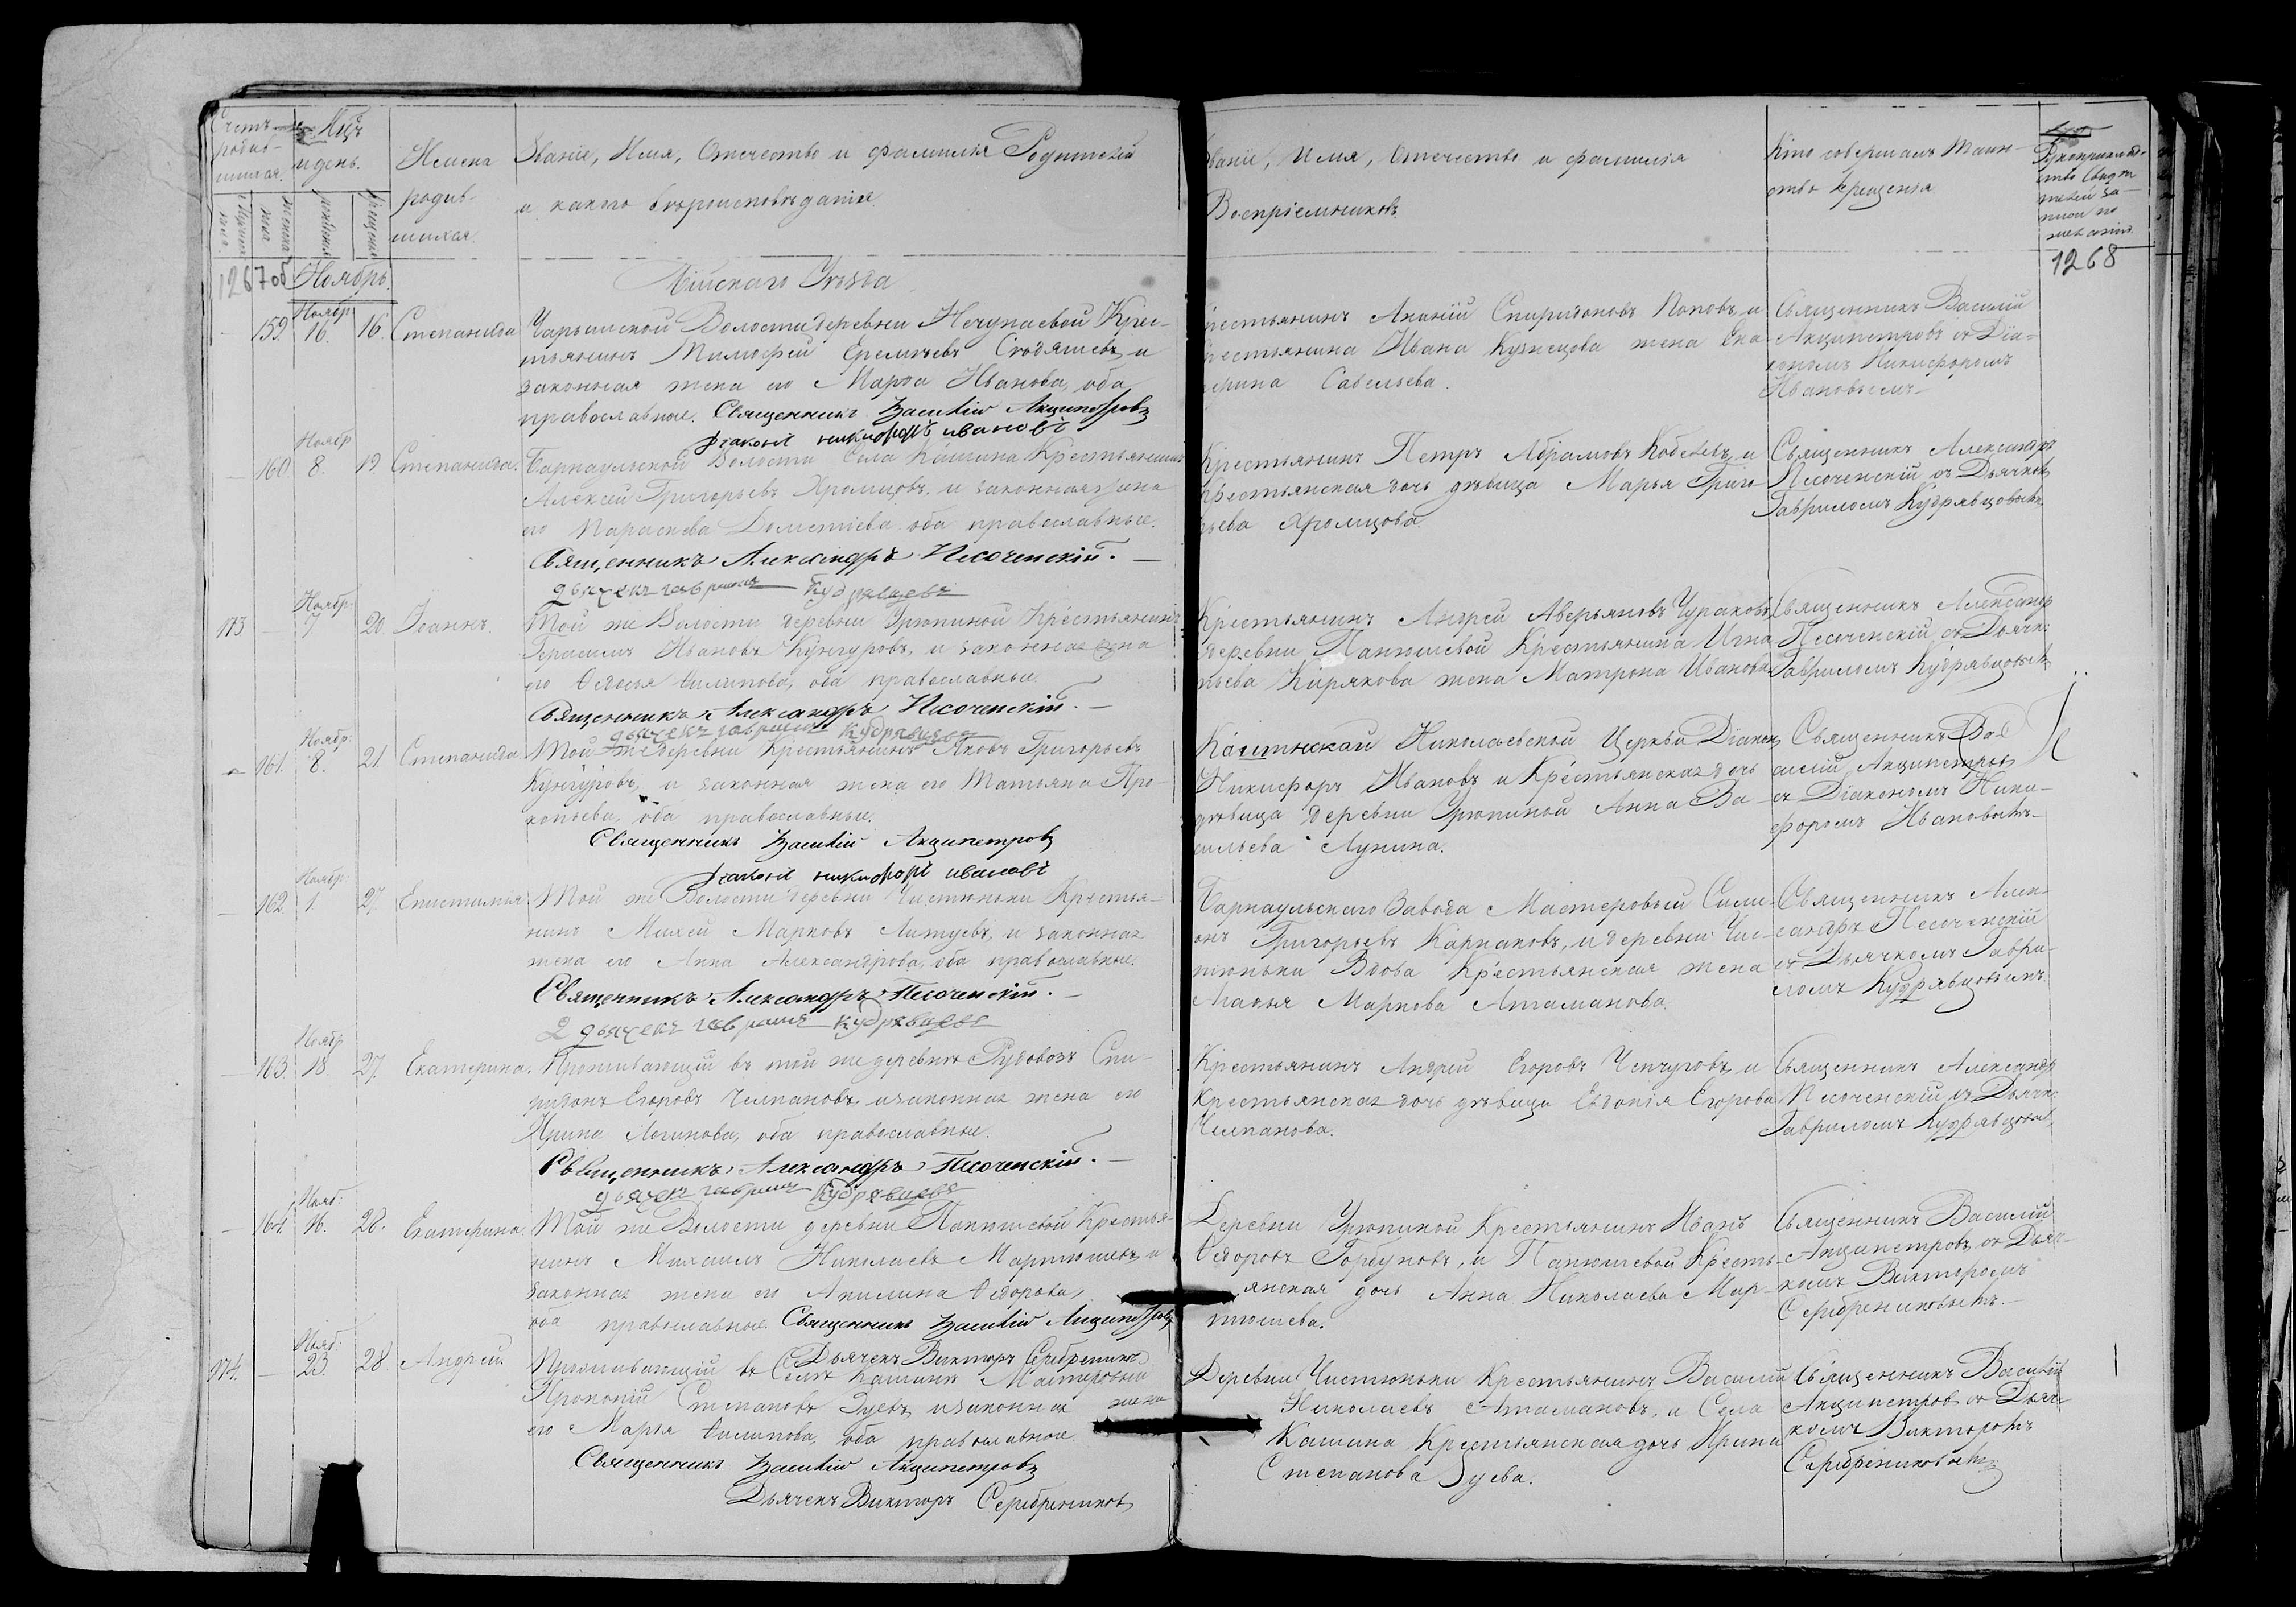 Счетъ родив-
шихся.
Мцъ
и день.
Имена
родив-
шихся.
Званіе, Имя, Отечество и фамилія Родителей
и какого вѣроисповѣданія.
Званіе, Имя, Отечество и фамилія
Воспріемниковъ.
Кто совершалъ таин-
ство крещенія
Рукоприклад-
ство свидѣ
телей за-
писи по
желанію.
1267об
Ноябрь.
Бійскаго Уѣзда
1268
159. Ноябр: 16. 16. Степанида
Чарышской Волости деревни Нечунаевой Крес-
тьянинъ Тимофей Еремѣевъ и
законная жена его Марѳа Иванова, оба
православные. Священникъ Василій Акципетровъ
Діаконъ никифоръ ивановъ
Крестьянинъ Ананій Спиридоновъ Поповъ, и
крестьянина Ивана Кузнецова жена Ека-
терина Савельева.
Священникъ Василій
Акципетровъ съ Діа-
кономъ Никифоромъ
Ивановымъ
160 Ноябр 8. 19 Степанида.
Барнаульской Волости Села Кашина Крестьянинъ
Алексей Григорьевъ Хромцовъ, и законная жена
его Параскева Дометіева оба православные.
Священникъ Александръ Песоченскій.
дьячекъ гаврилъ Кудрявцевъ
Крестьянинъ Петръ Абрамовъ Кобелевъ и
Крестьянская дочь дѣвица Марья Григо
рьева Хромцова.
Священникъ Александръ
Песоченскій съ Дьячком
Гавриломъ Кудрявцовымъ
173 Ноябр: 7 20. Іоаннъ.
Той же Волости деревни Урюпиной Крестьянинъ
Герасимъ Ивановъ Кунгуровъ, и законная жена
его Ѳедосья Филипова, оба православные.
Священникъ Александръ Песоченскій.
дьячекъ гаврилъ кудрявцовъ
Крестьянинъ Андрей Аверьяновъ Чураковъ,
деревни Панюшевой Крестьянина Игна
тьева Кирякова жена Матрона Иванова
Священникъ Александр
Песоченскій съ Дьячк:
Гавриломъ Кудрявцовымъ
161. Ноябр: 8. 21. Степанида
Той же деревни Крестьянинъ Яковъ Григорьевъ
Кунгуровъ, и законная жена его Татьяна Про-
копьева, оба православные.
Священникъ Василій Акципетровъ
Діаконъ никифоръ ивановъ
Кашинской Николаевской Церкви Діаконъ
Никифоръ Ивановъ и Крестьянская дочь
дѣвица деревни Урюпиной Анна Ва-
сильева Лунина.
Священникъ Ва-
силій Акципетровъ
съ Діакономъ Ники-
форомъ Ивановымъ
162 Ноябр: 1 27. Епистимія
Той же Волости деревни Чистюньки Крестья-
нинъ Михей Марковъ и законная
жена его Анна Александрова, оба православные.
Священникъ Александръ Песоченскій.
дьячекъ гаврилъ кудрявцевъ
Барнаульскаго Завода Мастеровый Сими-
онъ Григорьевъ Карпаковъ, и деревни Чис-
тюньки Вдова Крестьянская жена
Агафья Маркова Атаманова.
Священникъ Алек-
сандръ Песоченскій
съ Дьячкомъ Гаври-
ломъ Кудрявцовымъ.
163. Ноябр 18. 27. Екатерина.
Проживающій въ той же деревнѣ Рудовозъ Спи-
ридонъ Егоровъ Челпановъ и законная жена его
Ирина Логинова, оба православные.
Священникъ Александръ Песоченскій.
дьячекъ гаврилъ Кудрявцевъ
Крестьянинъ Андрей Егоровъ Чепчуговъ, и
Крестьянская дочь дѣвица Евдокія Егорова
Челпанова.
Священникъ Александр
Песоченскій съ Дьячк:
Гавриломъ Кудрявцовым
164. Нояб: 16. 28. Екатерина.
Той же Волости деревни Панюшевой Крестья-
нинъ Михаилъ Николаевъ Мартюшевъ и
законная жена его Акилина Ѳедорова,
оба православные. Священникъ Василій Акципетровъ
Дьячекъ Викторъ Серебрениковъ
Деревни Урюпиной Крестьянинъ Иванъ
Ѳедоровъ Горбуновъ, и Панюшевой Кресть-
янская дочь Анна Николаева Мар-
тюшева.
Священникъ Василій
Акципетровъ съ Дьяч-
комъ Викторомъ
Серебрениковымъ.
174. Нояб: 23. 28 Андрей.
Проживающій въ Селѣ Кашинѣ Мастеровый
Прокопій Степановъ Зуевъ и законная жена
его Марья Филипова, оба православные.
Священникъ Василій Акципетровъ
Дьячекъ Викторъ Серебрениковъ
Деревни Чистюньки Крестьянинъ Василій
Николаевъ Атамановъ, и Села
Кашина Крестьянская дочь Ирина
Степанова Зуева.
Священникъ Василій
Акципетровъ съ Дьяч-
комъ Викторомъ
Серебрениковымъ